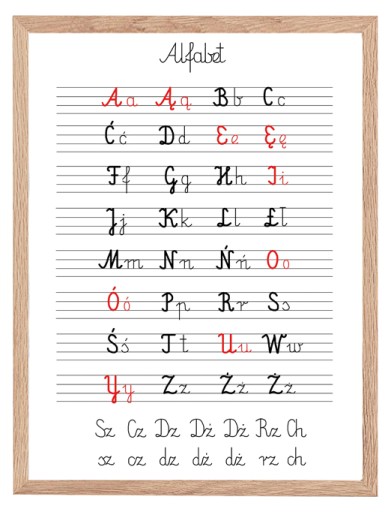 Alfabet
Aa Ąą Bb Cc
Ćć Dd Ee Ęę
Ff Gg Hh Ii
Jj Kk Ll Łł
Mm Nn Ńń Oo
Óó Pp Rr Ss
Śś Tt Uu Ww
Yy Zz Źź Żż
Sz Cz Dz Dż Dź Rz Ch
sz cz dz dż dź rz ch